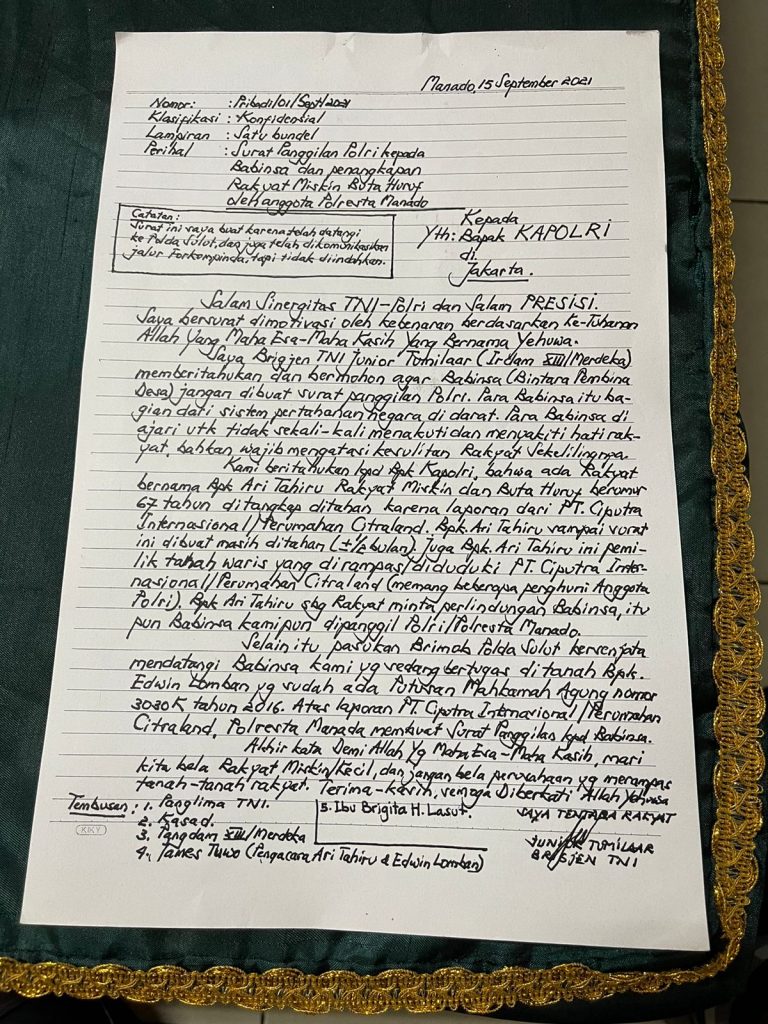 Manado, 15 September 2021
Nomor: : Pribadi/01/Sept/2021
Klasifikasi : Konfidensial
Lampiran : Satu bundel
Perihal : Surat Panggilan Polri kepada
Babinsa dan penangkapan
Rakyat Miskin Buta Huruf
oleh anggota Polresta Manado
Catatan:
Surat ini saya buat karena telah datangi
ke Polda Sulut, dan juga telah dikomunikasikan
jalur Forkompinda, tapi tidak diindahkan.
Kepada
Yth: Bapak KAPOLRI
di
Jakarta.
Salam Sinergitas TNI-Polri dan Salam PRESISI.
Saya bersurat dimotivasi oleh kebenaran berdasarkan Ke-Tuhanan
Allah Yang Maha Esa-Maha Kasih Yang Bernama Yehuwa.
Saya Brigjen TNI Junior Tumilaar (Irdam XIII/Merdeka)
memberitahukan dan bermohon agar Babinsa (Bintara Pembina
Desa) jangan dibuat surat panggilan Polri. Para Babinsa itu ba-
gian dari sistem pertahanan negara di darat. Para Babinsa di
ajari utk tidak sekali-kali menakuti dan menyakiti hati rak-
yat, bahkan wajib mengatasi kesulitan Rakyat Sekelilingnya.
Kami beritahukan kpd Bpk Kapolri, bahwa ada Rakyat
bernama Bpk Ari Tahiru Rakyat Miskin dan Buta Huruf berumur
67 tahun ditangkap ditahan karena laporan dari PT. Ciputra
Internasional/Perumahan Citraland. Bpk. Ari Tahiru sampai surat
ini dibuat masih ditahan (±1/2 bulan). Juga Bpk. Ari Tahiru ini pemi-
lik tanah waris yang dirampas/diduduki PT. Ciputra Inter-
nasional/Perumahan Citraland (memang beberapa penghuni Anggota
Polri). Bpk Ari Tahiru sbg Rakyat minta perlindungan Babinsa, itu
pun Babinsa kamipun dipanggil Polri/Polresta Manado.
Selain itu pasukan Brimob Polda Sulut bersenjata
mendatangi Babinsa kami yg sedang bertugas di tanah Bpk.
Edwin Lomban yg sudah ada Putusan Mahkamah Agung nomor
3030K tahun 2016. Atas laporan PT. Ciputra Internasional/Perumahan
Citraland, Polresta Manado membuat Surat Panggilan kpd Babinsa.
Akhir kata Demi Allah Yg Maha Esa-Maha Kasih, mari
kita bela Rakyat Miskin/Kecil, dan jangan bela perusahaan yg merampas
tanah-tanah rakyat. Terima-kasih, semoga Diberkati Allah Yehuwa
Tembusan: 1. Panglima TNI.
2. Kasad.
3. Pangdam XIII/Merdeka
4. James Tuwo (Pengacara Ari Tahiru & Edwin Lomban)
5. Ibu Brigita H. Lasut.
SAYA TENTARA RAKYAT
JUNIOR TUMILAAR
BRIGJEN TNI
KIKY